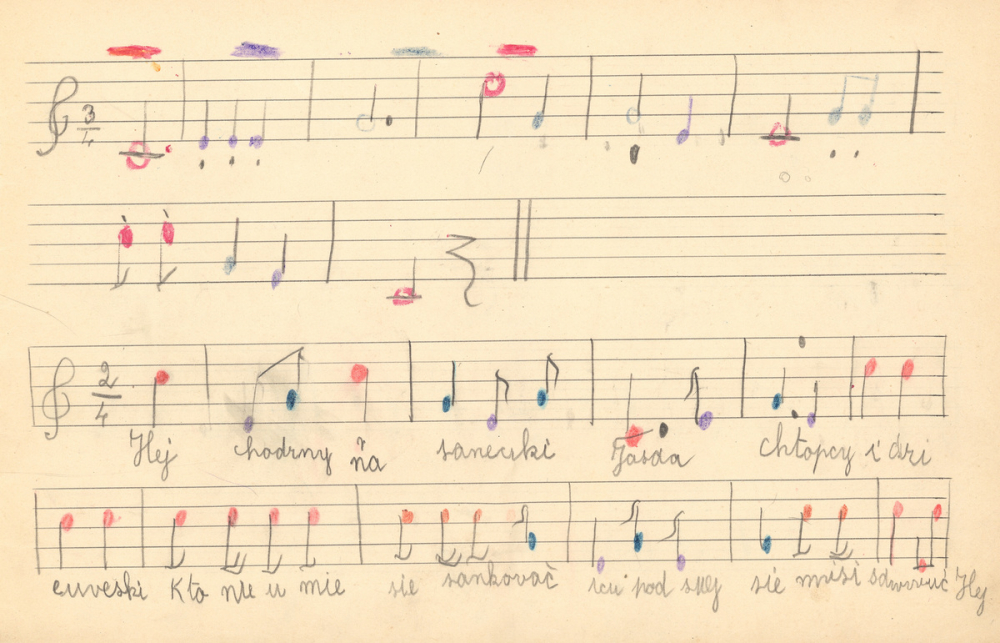 3/4
2/4
Hej chodzmy na sanecski Jasda chłopcy i dzi
euveski Kto nie u mie sie sankovać icu pod siej sie musi Hej